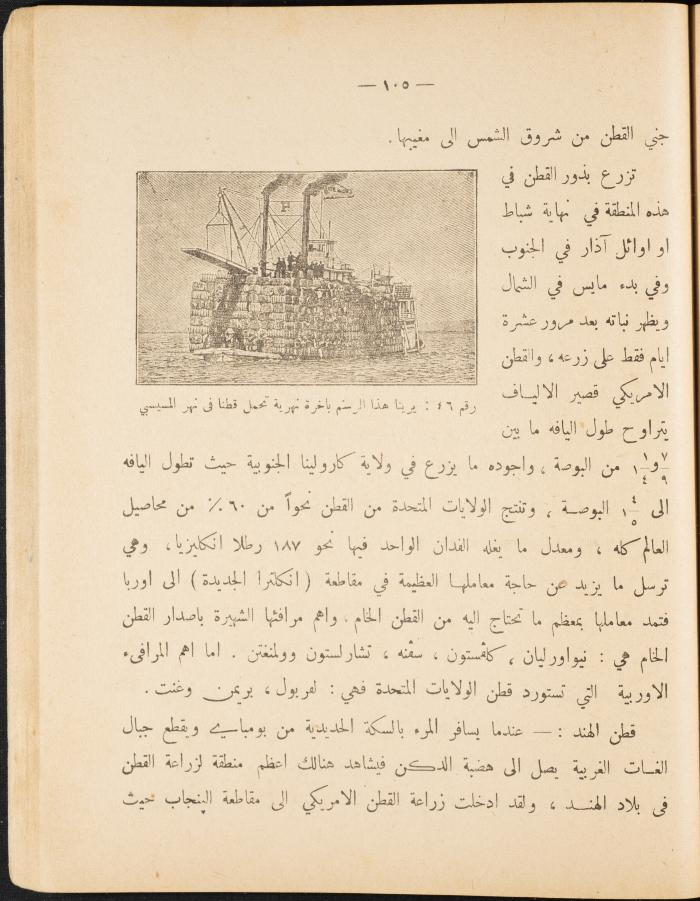 — ١٠٥ —
جني القطن من شروق الشمس الى مغيبها .
تزرع بذور القطن في
هذه المنطقة في نهاية شباط
او اوائل آذار في الجنوب
وفي بدء مايس في الشمال
ويظهر نباته بعد مرور عشرة
ايام فقط على زرعه ، والقطن
الامريكي قصير الالياف
يتراوح طول اليافه ما بين
رقم ٤٦ : يرينا هذا الرسم باخرة نهرية تحمل قطنا في نهر المسيسبي
٧/٩ و ١ ١/٤ من البوصة ، واجوده ما يزرع في ولاية كارولينا الجنوبية حيث تطول اليافه
الى ١ ٤/٥ البوصة ، وتنتج الولايات المتحدة من القطن نحواً من ٦٠ ٪ من محاصيل
العالم كله ، ومعدل ما يغله الفدان الواحد فيها نحو ١٨٧ رطلا انكليزيا ، وهي
ترسل ما يزيد عن حاجة معاملها العظيمة في مقاطعة ( انكلترا الجديدة ) الى اوربا
فتمد معاملها بمعظم ما تحتاج اليه من القطن الخام . واهم مرافئها الشهيرة باصدار القطن
الخام هي : نيواورليان ، كلڤستون ، سڤنه ، تشارلستون وولمنغتن . اما اهم المرافىء
الاوربية التي تستورد قطن الولايات المتحدة فهي : لفربول ، بريمن وغنت .
قطن الهند : — عندما يسافر المرء بالسكة الحديدية من بومباي ويقطع جبال
الغات الغربية يصل الى هضبة الدكن فيشاهد هنالك اعظم منطقة لزراعة القطن
في بلاد الهند ، ولقد ادخلت زراعة القطن الامريكي الى مقاطعة الپنجاب حيث